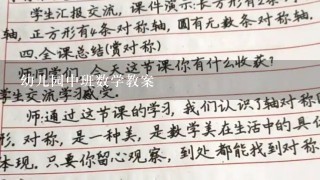 学生汇报交流,课件演示:长方形有2条
轴,正方形有4条对称轴,圆有无数条对称轴.
四.全课总结(赏对称)
今天这节课你有什么收获?
幼儿园中班数学教案
学生交流学习感受.
师:通过这节课的学习,我们认识了轴对称
形.对称,是一种美,是数学美在生活中的具
体现.只要你留心观察,到处都能找到对称